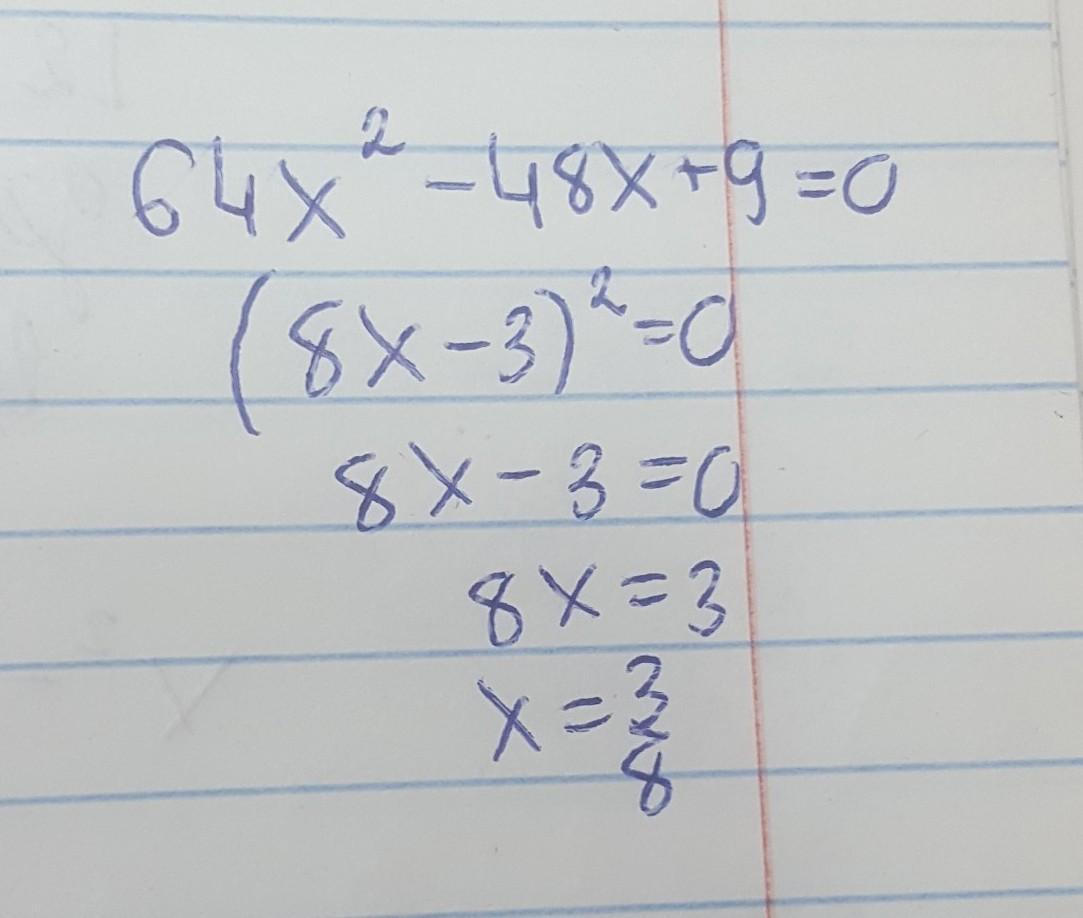 64x² -48x+9=0
(8x-3)²=0
8x-3=0
8x=3
x=3/8